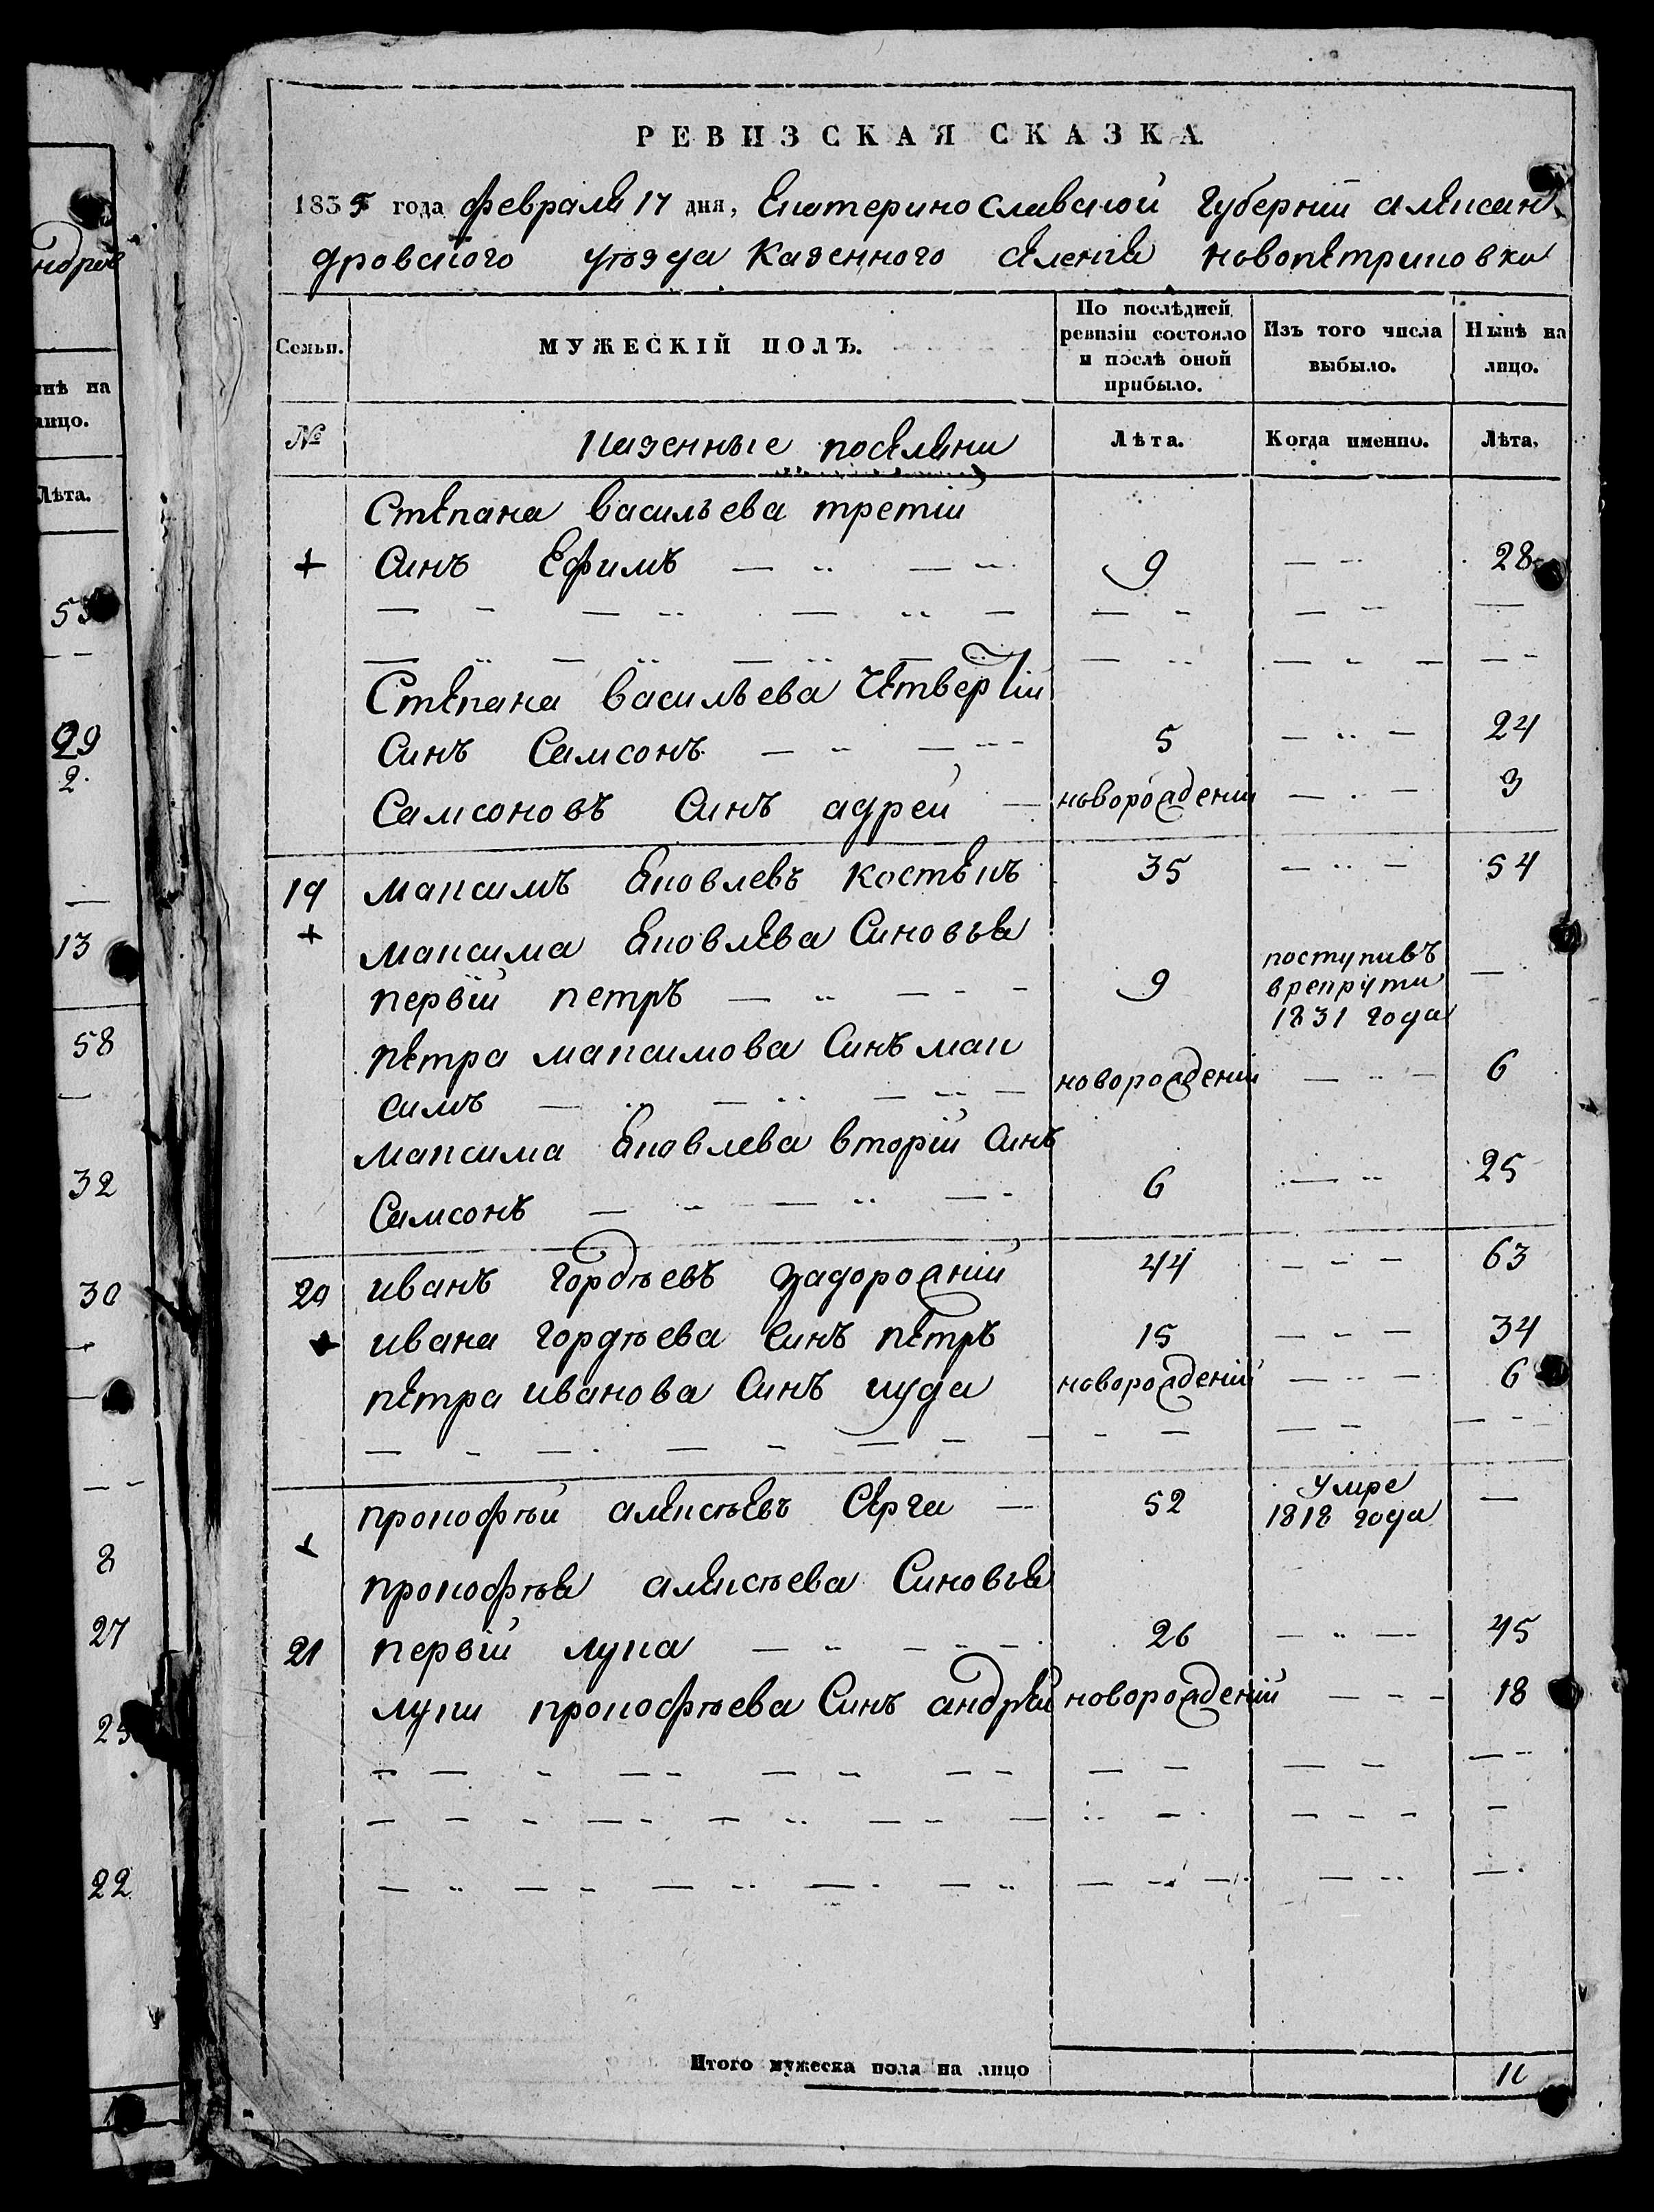 РЕВИЗСКАЯ СКАЗКА
1835 года февраля 17 дня, Екатеринославской губернии алексан
дровского уезда Казенного селения новопетриковки
Семьи. МУЖЕСКІЙ ПОЛЪ. По послѣдней ревизіи состояло и послѣ оной прибыло. Изъ того числа выбыло. Нынѣ на лицо.
№ Казенные поселяни Лѣта. Когда именно. Лѣта.
Степана васильева третій
+ Синъ Ефимъ — 9 — 28
Степана васильева Четвертій
Синъ Самсонъ — 5 — 24
Самсоновъ Синъ адрей — новорожденій — 3
19 максимъ Яковлевъ костюкъ 35 — 54
+ максима Яковлева Синовья
первій петръ — 9 поступивъ врекрути 1831 года —
петра максимова Синъ мак
симъ — новорожденій — 6
максима Яковлева вторій Синъ
Самсонъ — 6 — 25
20 иванъ гордѣевъ задорожній 44 — 63
+ ивана гордѣева Синъ петръ 15 — 34
петра иванова Синъ иуда новорожденій — 6
прокофѣй алексѣевъ Серга — 52 Умре 1818 года —
+ прокофѣя алексѣева Синовья
21 первій лука — 26 — 45
луки прокофѣева Синъ андрей новорожденій — 18
Итого мужеска пола на лицо 11
ндров
нѣ на
лицо.
Лѣта.
53
29
2
13
58
32
30
8
27
25
22